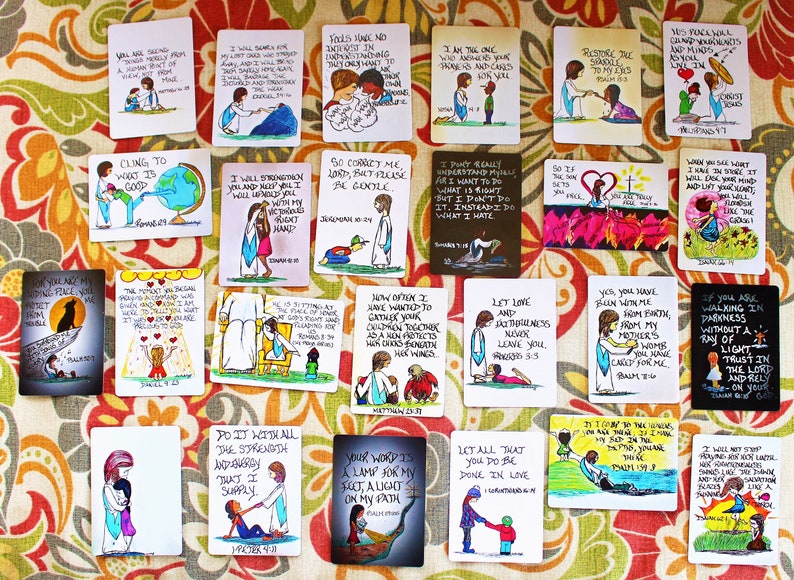 YOU ARE SEEING
THINGS MERELY FROM
A HUMAN POINT OF
VIEW, NOT FROM
MINE
MATTHEW 16:23
I WILL SEARCH FOR
MY LOST ONES WHO STRAYED
AWAY, AND I WILL BRING
THEM SAFELY HOME AGAIN.
I WILL BANDAGE THE
INJURED AND STRENGTHEN
THE WEAK
EZEKIEL 34:16
FOOLS HAVE NO
INTEREST IN
UNDERSTANDING
THEY ONLY WANT TO
AIR
THEIR
OWN
OPINIONS.
PROVERBS 18:2
I AM THE ONE
WHO ANSWERS YOUR
PRAYERS AND CARES
FOR YOU
HOSEA 14:8
RESTORE THE
SPARKLE
TO MY EYES
PSALM 13:3
HIS PEACE WILL
GUARD YOUR HEARTS
AND MINDS
AS YOU
LIVE IN
CHRIST
JESUS
PHILIPPIANS 4:7
CLING TO
WHAT IS
GOOD
ROMANS 12:9
I WILL STRENGTHEN
YOU AND HELP YOU. I
WILL UPHOLD YOU
WITH MY
VICTORIOUS
RIGHT
HAND
ISAIAH 41:10
SO CORRECT ME,
LORD, BUT PLEASE
BE GENTLE.
JEREMIAH 10:24
I DON'T REALLY
UNDERSTAND MYSELF,
FOR I WANT TO DO
WHAT IS RIGHT
BUT I DON'T DO
IT. INSTEAD I DO
WHAT I HATE.
ROMANS 7:15
SO IF THE SON
SETS YOU
FREE,
YOU ARE TRULY
FREE
WHEN YOU SEE WHAT
I HAVE IN STORE IT
WILL EASE YOUR MIND
AND LIFT YOUR HEART;
YOU WILL
FLOURISH
LIKE THE
GRASS!
ISAIAH 66:14
FOR YOU ARE MY
HIDING PLACE; YOU
PROTECT ME
FROM
TROUBLE
PSALM 32:7
THE MOMENT YOU BEGAN
PRAYING A COMMAND
WAS GIVEN AND NOW I AM
HERE TO TELL YOU WHAT
IT WAS FOR YOU ARE
PRECIOUS TO GOD
DANIEL 9:23
HE IS SITTING AT
THE PLACE OF HONOR
AT GOD'S RIGHT HAND
PLEADING FOR
US
ROMANS 8:34
HOW OFTEN I
HAVE WANTED TO
GATHER YOUR
CHILDREN TOGETHER
AS A HEN PROTECTS
HER CHICKS BENEATH
HER WINGS...
MATTHEW 23:37
LET LOVE AND
FAITHFULNESS
NEVER
LEAVE YOU.
PROVERBS 3:3
YES, YOU HAVE
BEEN WITH ME
FROM BIRTH;
FROM MY
MOTHER'S
WOMB
YOU HAVE
CARED FOR ME.
PSALM 71:6
IF YOU ARE
WALKING IN
DARKNESS
WITHOUT A
RAY OF
LIGHT,
TRUST IN
THE LORD
AND RELY
ON YOUR
GOD
ISAIAH 50:10
DO IT WITH ALL
THE STRENGTH
AND ENERGY
THAT I
SUPPLY.
1 PETER 4:11
YOUR WORD IS
A LAMP FOR MY
FEET, A LIGHT
ON MY PATH
PSALM 119:105
LET ALL THAT
YOU DO BE
DONE IN LOVE
1 CORINTHIANS 16:14
IF I GO UP TO THE HEAVENS,
YOU ARE THERE; IF I MAKE
MY BED IN THE
DEPTHS, YOU ARE
THERE
PSALM 139:8
I WILL NOT STOP
PRAYING FOR HER UNTIL
HER RIGHTEOUSNESS
SHINES LIKE THE DAWN,
AND HER SALVATION
BLAZES LIKE A
BURNING
TORCH.
ISAIAH 62:1